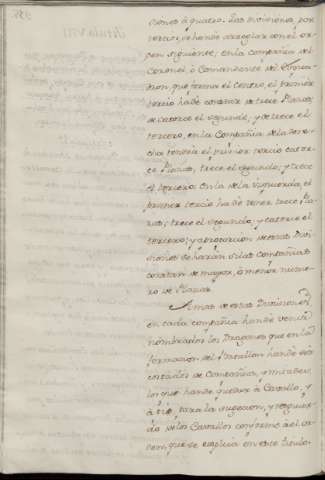 siones à quatro. Las Divisiones, por
tercios, se harán arreglar con el or-
den siguiente; en la Compañia del
Coronel, ò Comandante del Esqua-
dron, que forma el Centro, el primer
tercio hade constar de trece Plazas,
de catorce el segundo, y de trece el
tercero; en la Compañia de la dere-
cha tendrà el primer tercio cator-
ce Plazas, trece el segundo, y trece
el tercero: En la de la izquierda, el
primer tercio ha de tener trece Pla-
zas; trece el segundo, y catorce el
tercero; y à proporcion de estas Divi-
siones se haràn, si las Compañias
constaren de mayor, ò menor nume-
ro de Plazas.
Amas de estas Divisiones,
en cada compañia han de venir
nombrados los Dragones que en la
formacion del Batallon han de ser
costados de Compañias, y mitades,
los que han de quedar à Cavallo, y
à pie, para la sugecion, y resguar-
do de los Cavallos conforme à el or-
den, que se explica en este titulo.